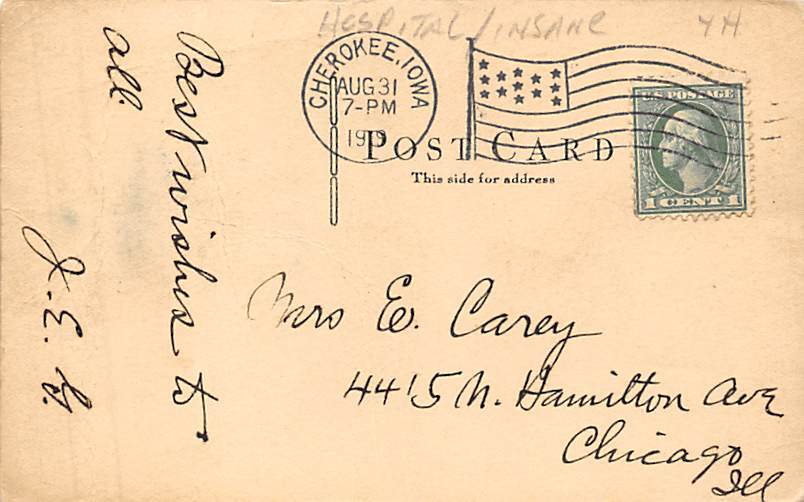 HOSPITAL/INSANE YH
CHEROKEE, IOWA
AUG 31
7-PM
U.S. POSTAGE
1 CENT 1
POST CARD
This side for address
Best wishes to
all.
J. E. G.
Mrs E. Carey
4415 N. Hamilton Ave
Chicago
Ill